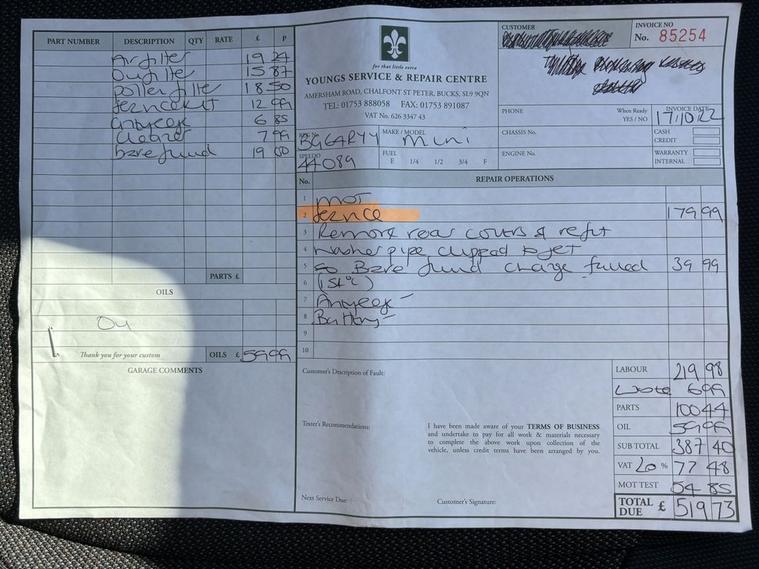 for that little extra
YOUNGS SERVICE & REPAIR CENTRE
AMERSHAM ROAD, CHALFONT ST PETER, BUCKS, SL9 9QN
TEL: 01753 888058 FAX: 01753 891087
VAT No. 626 3347 43
CUSTOMER
INVOICE NO
No. 85254
PHONE
When Ready
YES / NO
INVOICE DATE
17/10/22
MAKE / MODEL
Mini
CHASSIS No.
CASH
CREDIT
44089
FUEL
E 1/4 1/2 3/4 F
ENGINE No.
WARRANTY
INTERNAL
PART NUMBER DESCRIPTION QTY RATE £ P
Air filter
Oil filter 15 87
pollen filter 18 50
12 99
6 85
cleaner 7 99
fluid 19 00
PARTS £
OILS
Oil
Thank you for your custom OILS £ 59 99
GARAGE COMMENTS
No. REPAIR OPERATIONS
1 MOT
2 Service 179 99
3 Remove rear covers & refit
4 washer pipe clipped to jet
5 fluid change 39 99
6
7
8 Battery
9
10
Customer's Discription of Fault:
Tester's Recommendations:
I have been made aware of your TERMS OF BUSINESS
and undertake to pay for all work & materials necessary
to complete the above work upon collection of the
vehicle, unless credit terms have been arranged by you.
Next Service Due:
Customer's Signature:
LABOUR 219 98
waste 6 99
PARTS 100 44
OIL 59 99
SUB TOTAL 387 40
VAT 20 % 77 48
MOT TEST 54 85
TOTAL DUE £ 519 73